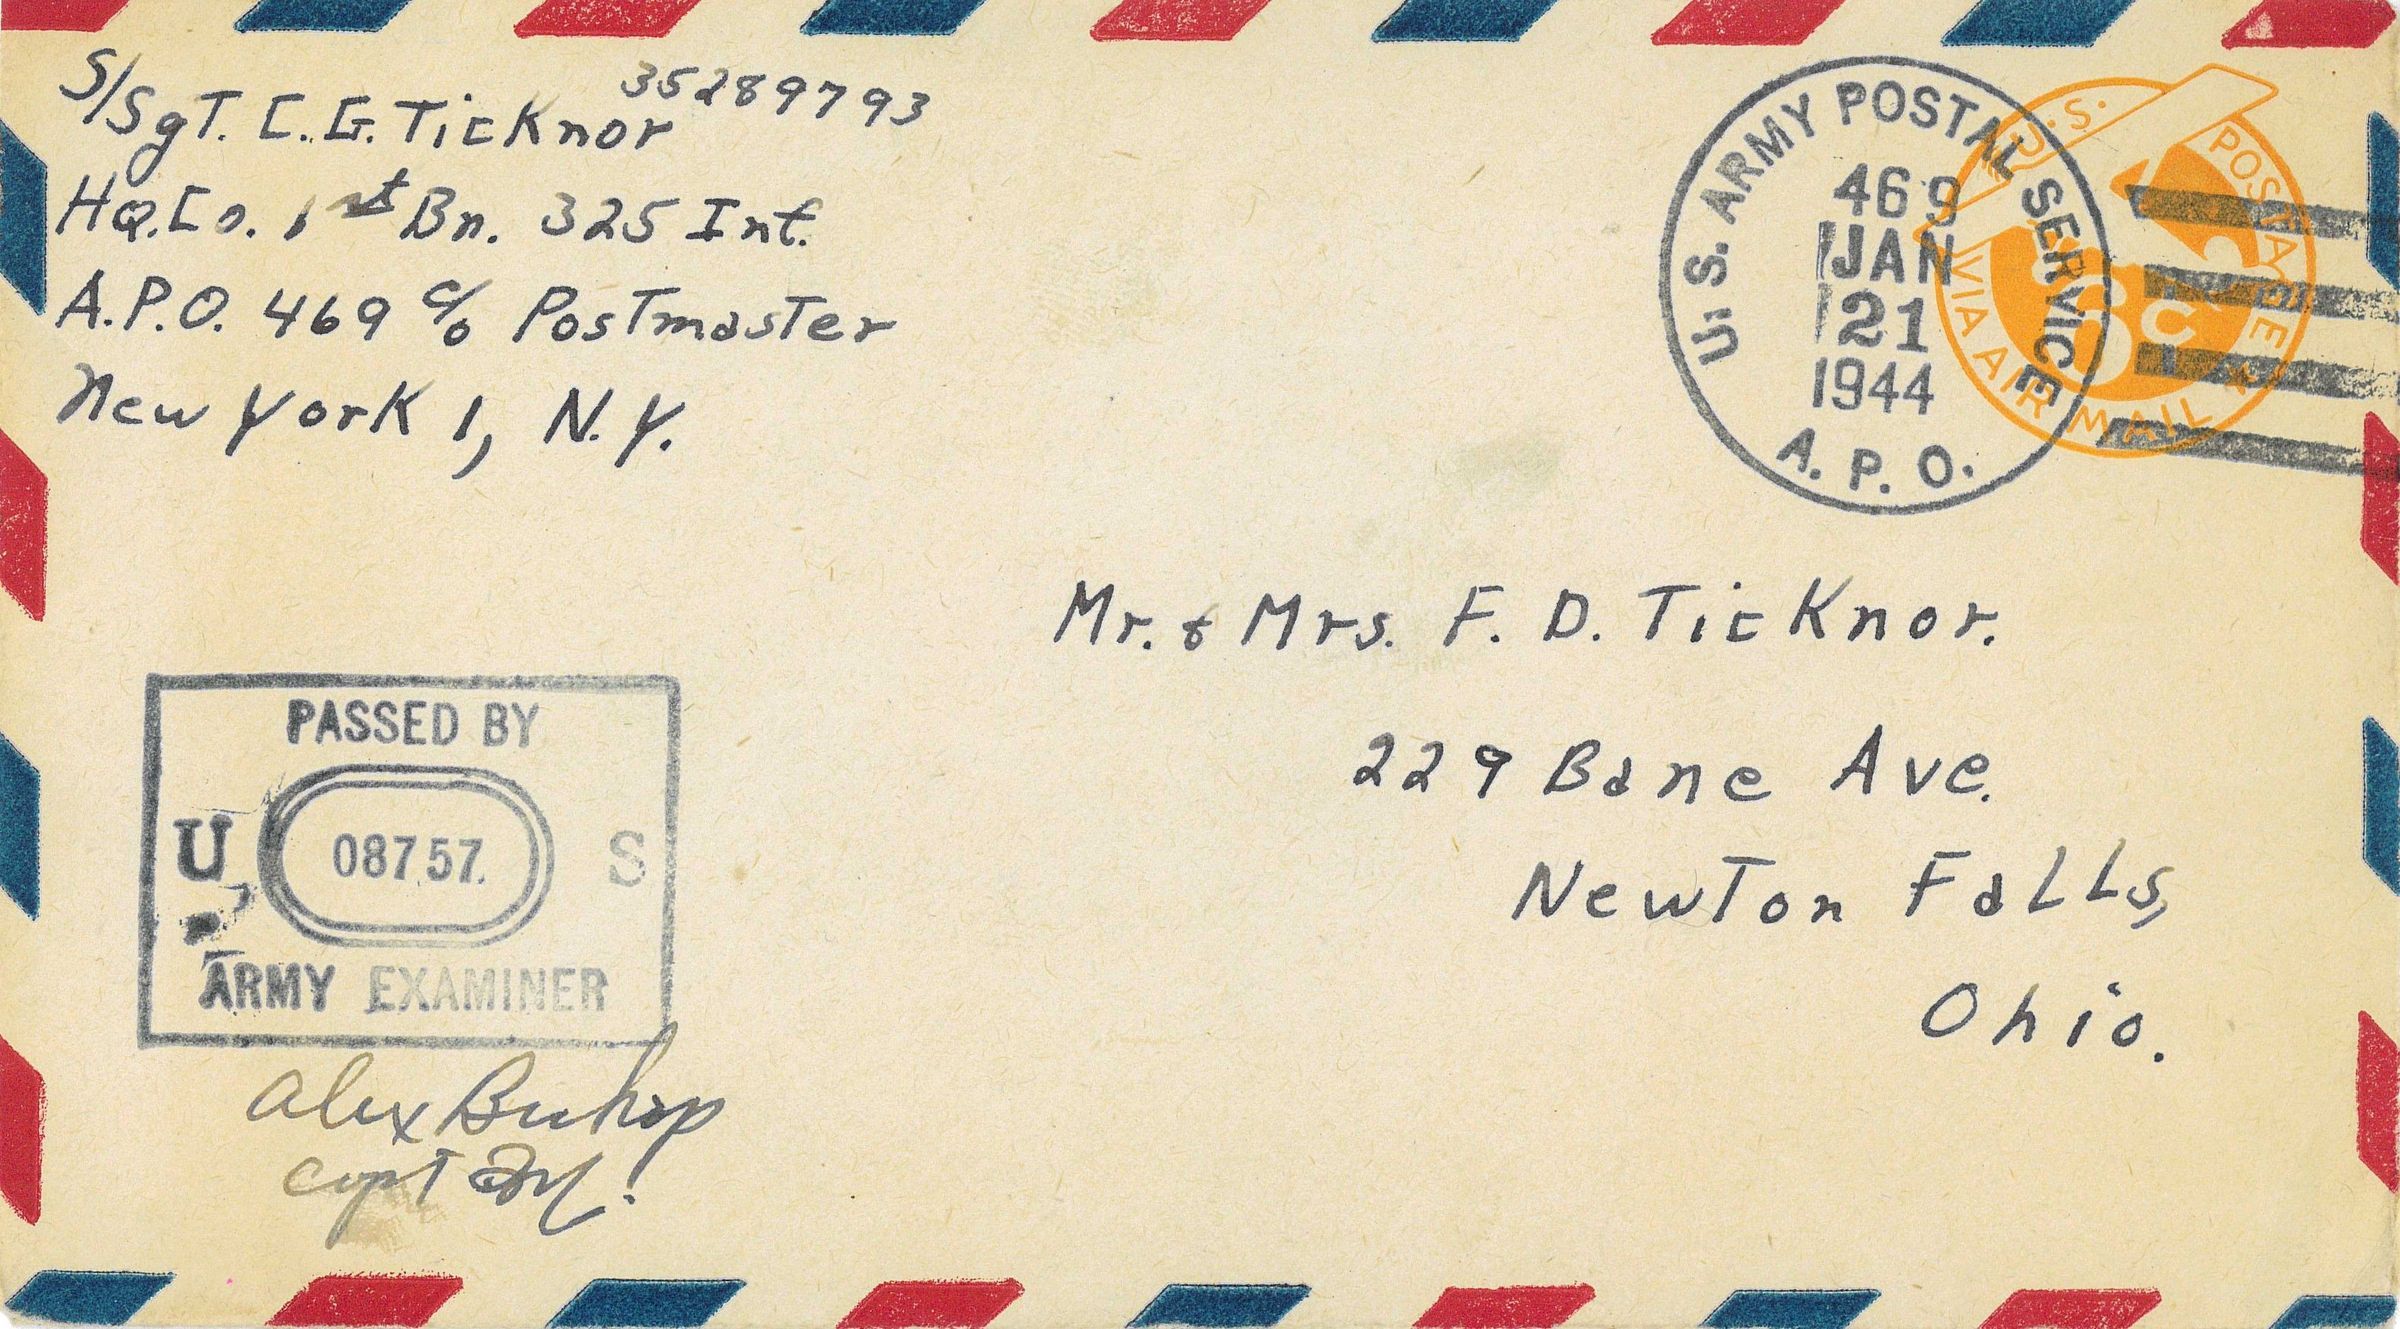 S/SgT. C. G. Ticknor 35289793
Hq. Co. 1st Bn. 325 Inf.
A.P.O. 469 c/o Postmaster
New York 1, N.Y.
U.S. ARMY POSTAL SERVICE
469
JAN
21
1944
A. P. O.
U.S. POSTAGE
6c
VIA AIR MAIL
Mr. & Mrs. F. D. Ticknor.
229 Bane Ave.
Newton Falls,
Ohio.
PASSED BY
U 08757 S
ARMY EXAMINER
Alex Bishop
Capt